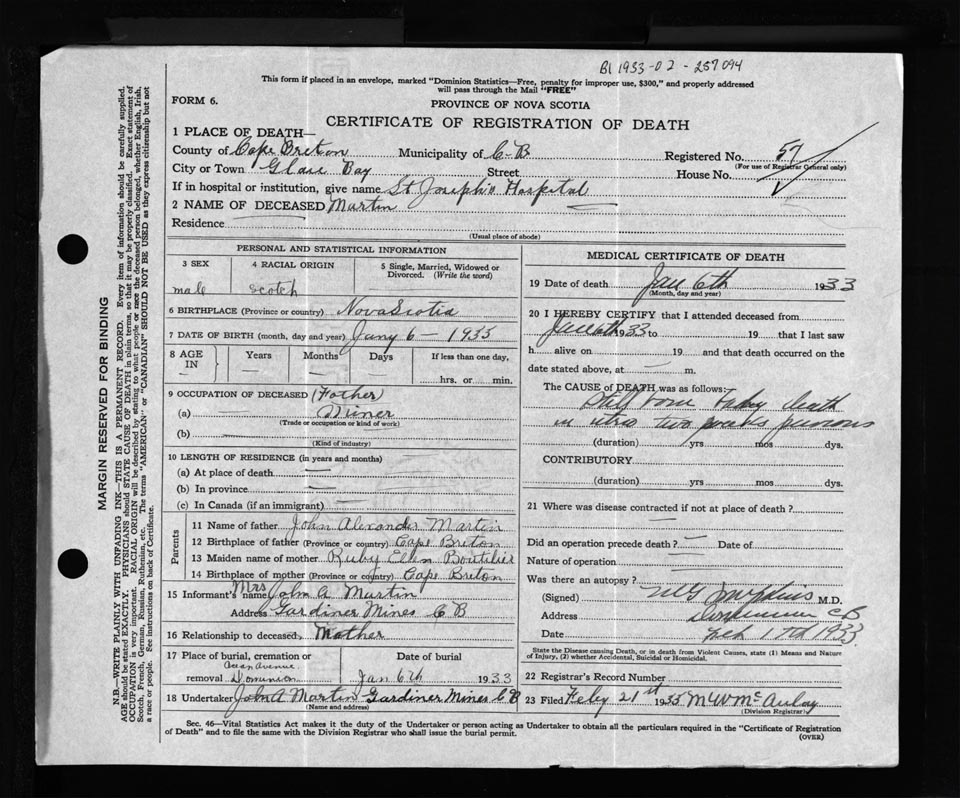 B1 1933-02-257094
This form if placed in an envelope, marked "Dominion Statistics—Free, penalty for improper use, $300," and properly addressed
will pass through the Mail "FREE"
FORM 6.
PROVINCE OF NOVA SCOTIA
CERTIFICATE OF REGISTRATION OF DEATH
1 PLACE OF DEATH—
County of Cape Breton Municipality of C-B Registered No. 57
(For use of Registrar General only)
City or Town Glace Bay Street House No.
If in hospital or institution, give name St Joseph's Hospital
2 NAME OF DECEASED Martin
Residence
(Usual place of abode)
PERSONAL AND STATISTICAL INFORMATION
3 SEX 4 RACIAL ORIGIN 5 Single, Married, Widowed or Divorced. (Write the word)
male Scotch
6 BIRTHPLACE (Province or country) Nova Scotia
7 DATE OF BIRTH (month, day and year) Jany 6 - 1933
8 AGE IN Years Months Days If less than one day,
hrs. or min.
9 OCCUPATION OF DECEASED (Father)
(a) Miner
(Trade or occupation or kind of work)
(b)
(Kind of industry)
10 LENGTH OF RESIDENCE (in years and months)
(a) At place of death
(b) In province
(c) In Canada (if an immigrant)
Parents
11 Name of father John Alexander Martin
12 Birthplace of father (Province or country) Cape Breton
13 Maiden name of mother Ruby Ellen Boutilier
14 Birthplace of mother (Province or country) Cape Breton
15 Informant's name Mrs John A Martin
Address Gardiner Mines C B
16 Relationship to deceased Mother
17 Place of burial, cremation or removal Ocean Avenue Dominion
Date of burial Jan 6th 1933
18 Undertaker John A Martin Gardiner Mines C B
(Name and address)
MEDICAL CERTIFICATE OF DEATH
19 Date of death Jan 6th 1933
(Month, day and year)
20 I HEREBY CERTIFY that I attended deceased from
Jan 6th 1933 to 19 that I last saw
h alive on 19 and that death occurred on the
date stated above, at m.
The CAUSE of DEATH was as follows:
Still born baby death
in utero two weeks previous
(duration) yrs mos dys.
CONTRIBUTORY
(duration) yrs mos dys.
21 Where was disease contracted if not at place of death?
Did an operation precede death? Date of
Nature of operation
Was there an autopsy?
(Signed) M.D.
Address Dominion CB
Date Feb 17th 1933
State the Disease causing Death, or in death from Violent Causes, state (1) Means and Nature
of Injury, (2) whether Accidental, Suicidal or Homicidal.
22 Registrar's Record Number
23 Filed Feby 21st 1933 M W McAulay
(Division Registrar)
Sec. 46—Vital Statistics Act makes it the duty of the Undertaker or person acting as Undertaker to obtain all the particulars required in the "Certificate of Registration
of Death" and to file the same with the Division Registrar who shall issue the burial permit.
(OVER)
MARGIN RESERVED FOR BINDING
N.B.—WRITE PLAINLY WITH UNFADING INK—THIS IS A PERMANENT RECORD. Every item of information should be carefully supplied.
AGE should be stated EXACTLY. PHYSICIANS should STATE CAUSE OF DEATH in plain terms, so that it may be properly classified. Exact statement of
OCCUPATION is very important. RACIAL ORIGIN will be described by stating to what people or race the deceased person belonged, whether English, Irish,
Scotch, French, German, Russian, Ruthenian, etc. The terms "AMERICAN" or "CANADIAN" SHOULD NOT BE USED as they express citizenship but not
a race or people. See instructions on back of Certificate.